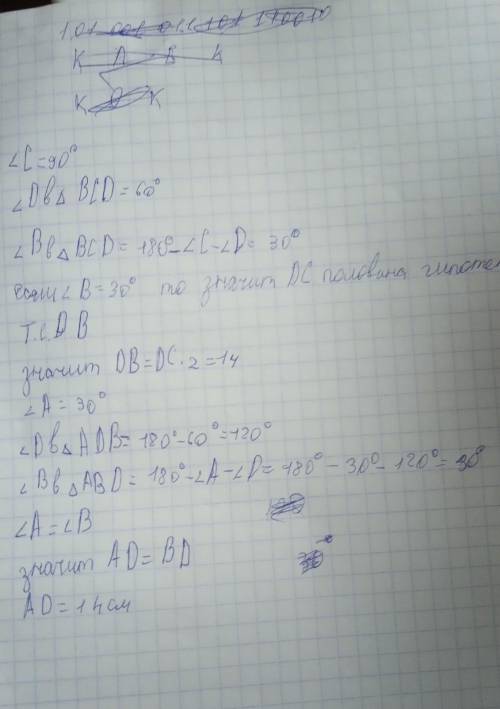 ∠C=90°
∠D в △ BCD = 60°
∠B в △ BCD = 180°-∠C-∠D= 30°
если ∠B=30° то значит DC половина гипотен
т.е. DB
значит DB=DC·2=14
∠A=30°
∠D в △ ADB= 180°-60°=120°
∠B в △ ABD = 180°-∠A-∠D= 180°-30°-120°=30°
∠A=∠B
значит AD=BD
AD=14 см